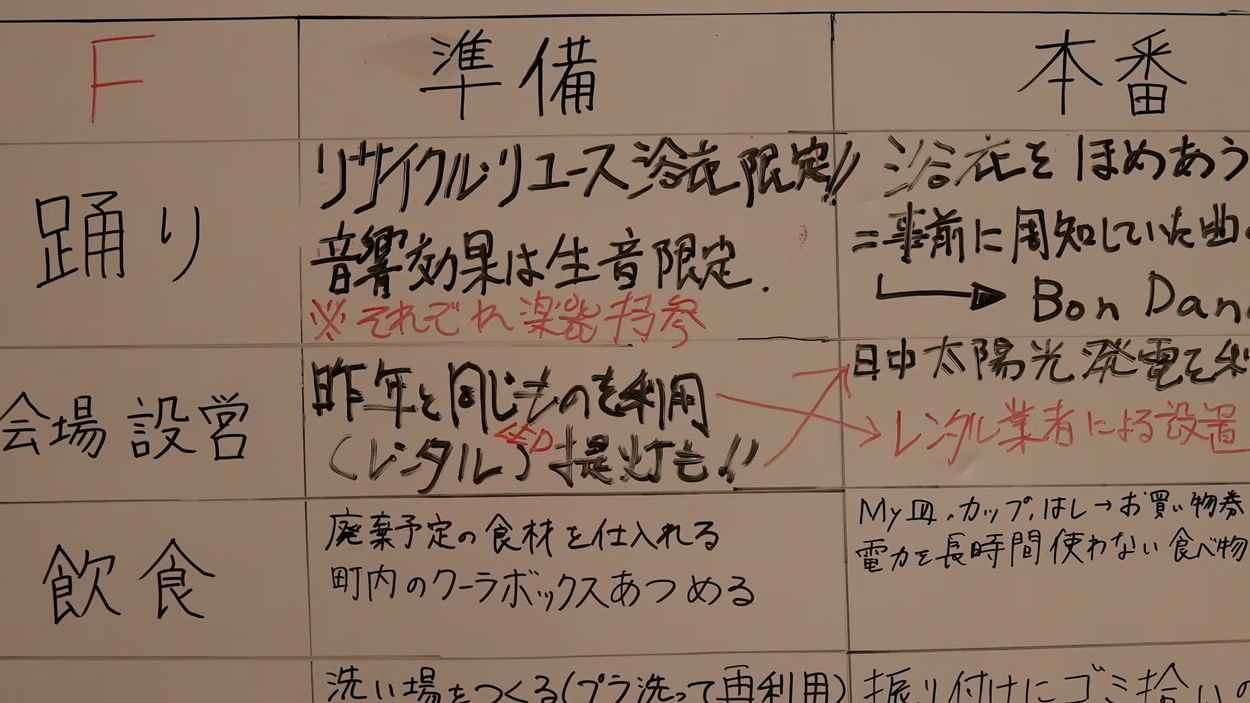 F
準備
本番
踊り
リサイクル・リユース浴衣限定!!
音響効果は生音限定.
※それぞれ楽器持参
浴衣をほめあう
=事前に周知していた曲
Bon Dan
会場設営
昨年と同じものを利用
(レンタル) LED 提灯も!!
日中太陽光発電を利
レンタル業者による設置
飲食
廃棄予定の食材を仕入れる
町内のクーラボックスあつめる
My皿、カップ、はし→お買い物券
電力を長時間使わない食べ物
洗い場をつくる(プラ洗って再利用)
振り付けにゴミ拾いの